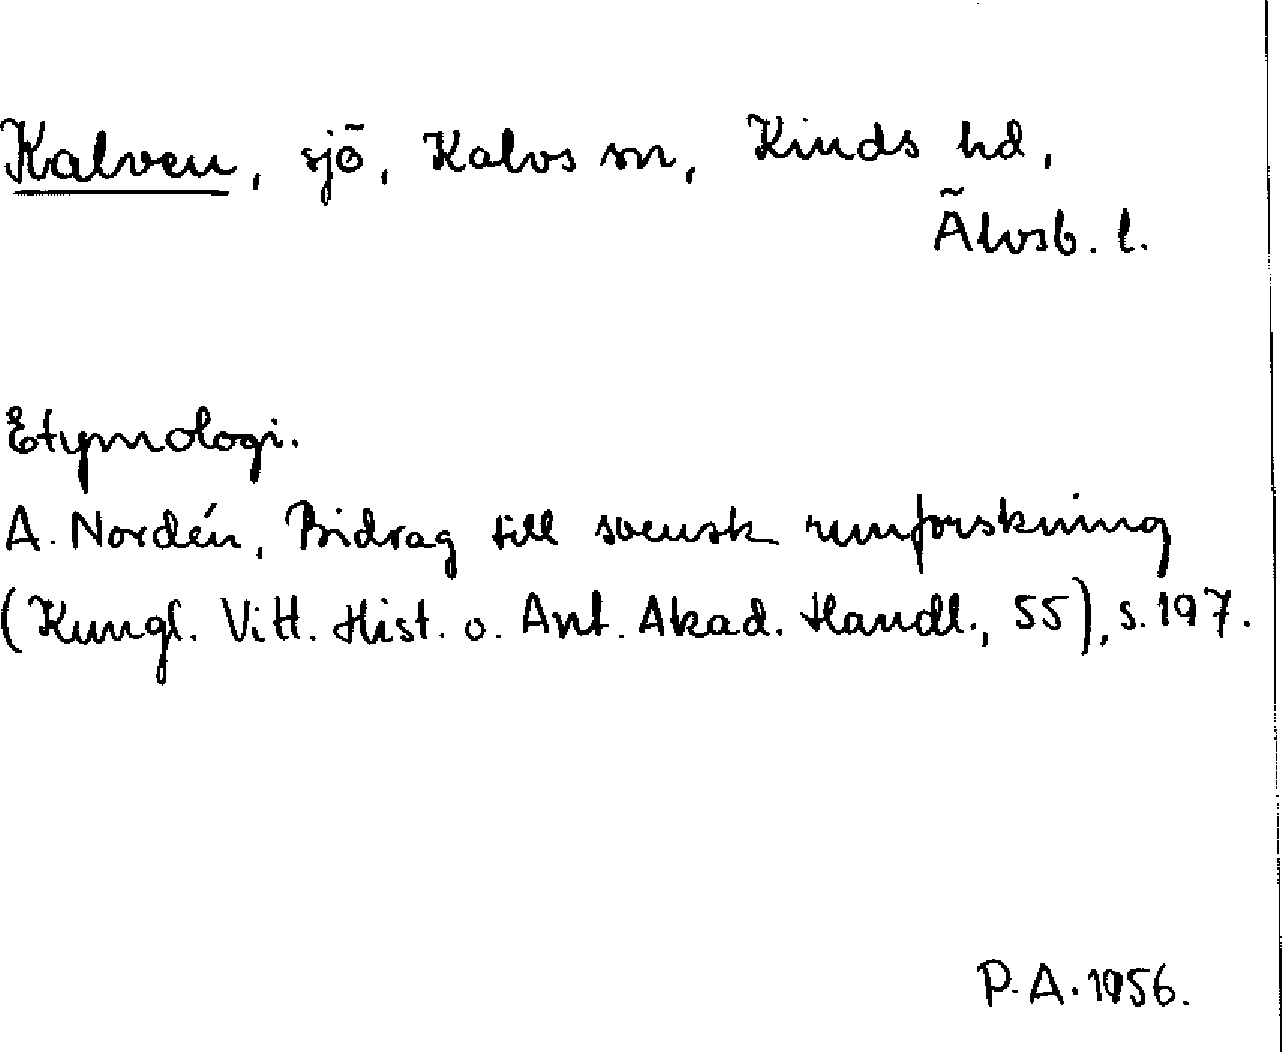 Kalven, sjö, Kalvs sn, Kinds hd,
Älvsb. l.
Etymologi.
A. Nordén, Bidrag till svensk runforskning
(Kungl. Vitt. Hist. o. Ant. Akad. Handl., 55), s. 197.
P. A. 1956.